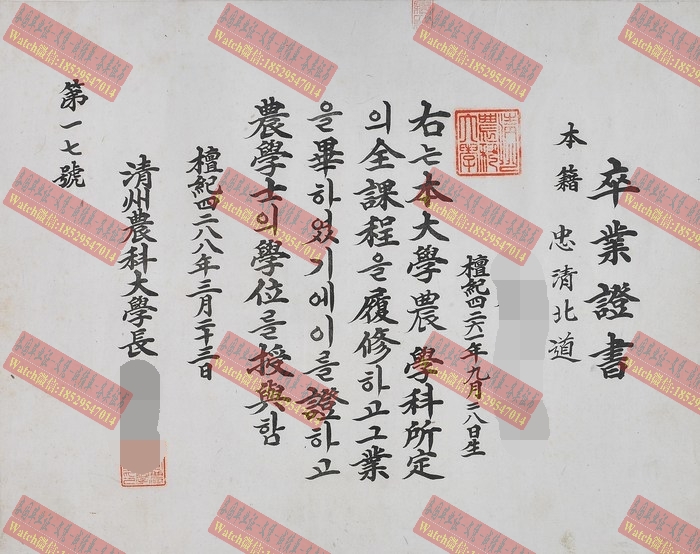 卒業證書
本籍 忠清北道
檀紀四二六一年九月二八日生
右는本大學農學科所定
의全課程을履修하고그業
을畢하였기에이를證하고
農學士의學位를授與함
檀紀四二八八年三月二十三日
清州農科大學長
第一七號
Watch微信:18529547014